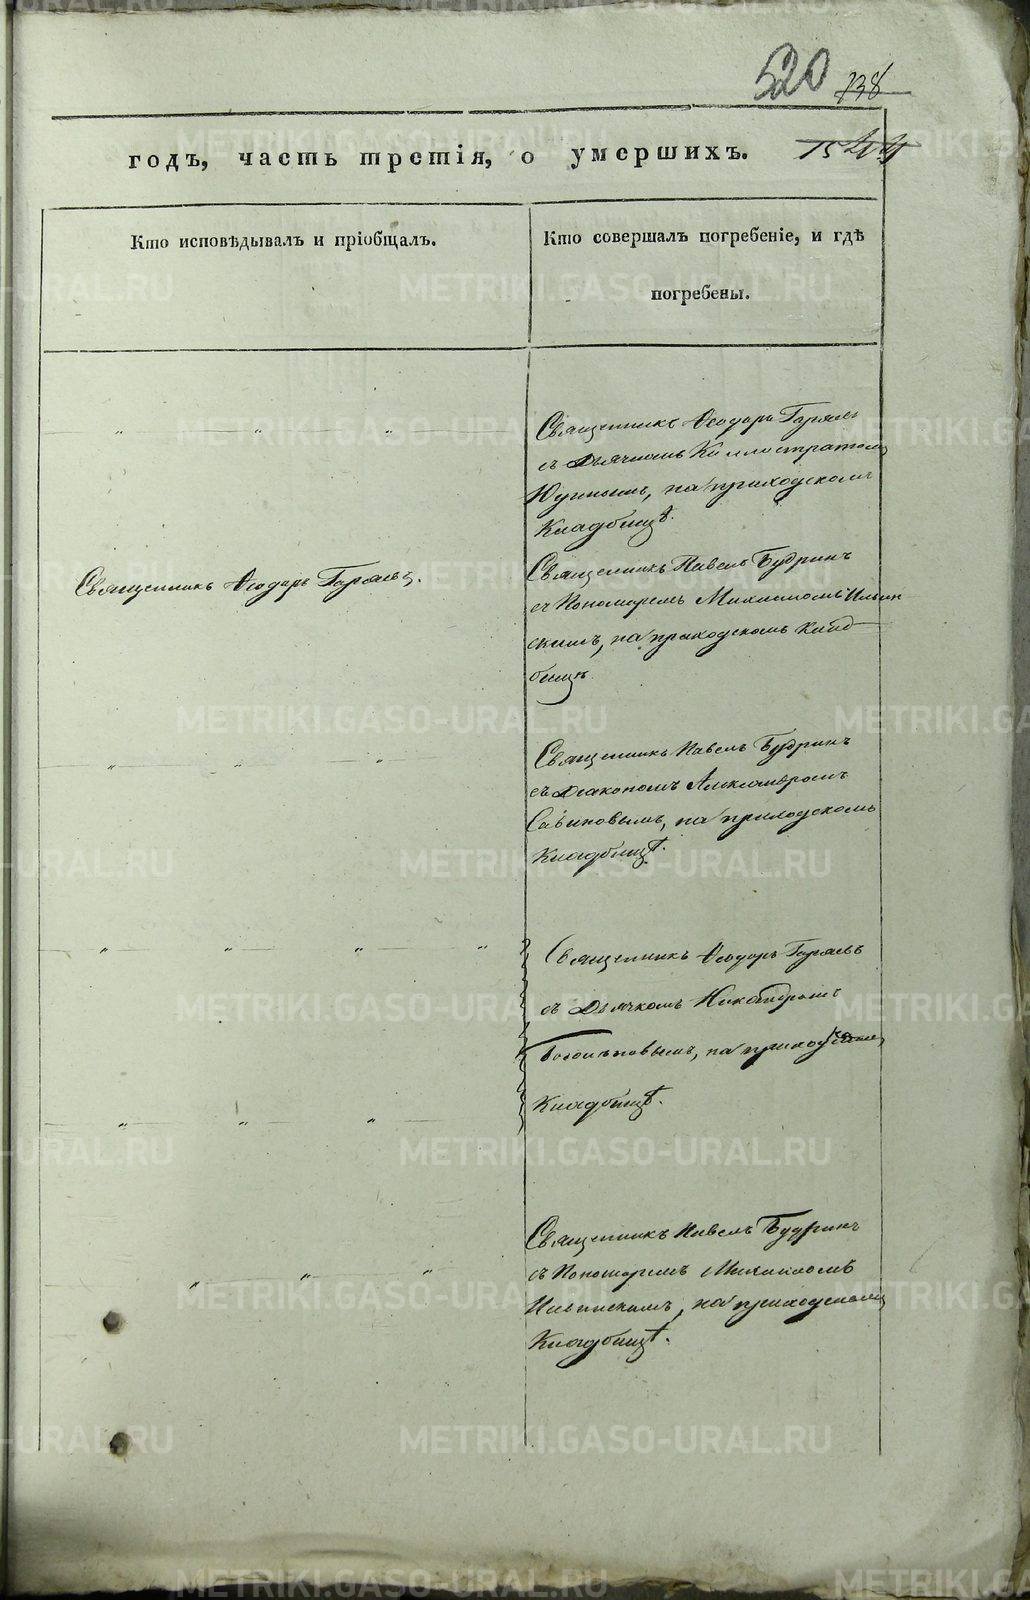 520
738
годъ, часть третія, о умершихъ.
Кто исповѣдывалъ и пріобщалъ.
Кто совершалъ погребеніе, и гдѣ
погребены.
Священникъ Ѳеодоръ Горяевъ
съ Дьячкомъ Каллистратомъ
на приходскомъ
Кладбищѣ.
Священникъ Ѳеодоръ Горяевъ.
Священникъ Павелъ Будринъ
съ Пономаремъ Михаиломъ Ильин
скимъ, на приходскомъ клад
бищѣ.
Священникъ Павелъ Будринъ
съ Діакономъ Александромъ
Савиновымъ, на приходскомъ
Кладбищѣ.
Священникъ Ѳеодоръ Горяевъ
съ Дьячкомъ Никандромъ
на приходскомъ
Кладбищѣ.
Священникъ Павелъ Будринъ
съ Пономаремъ Михаиломъ
Ильинскимъ, на приходскомъ
Кладбищѣ.
METRIKI.GASO-URAL.RU